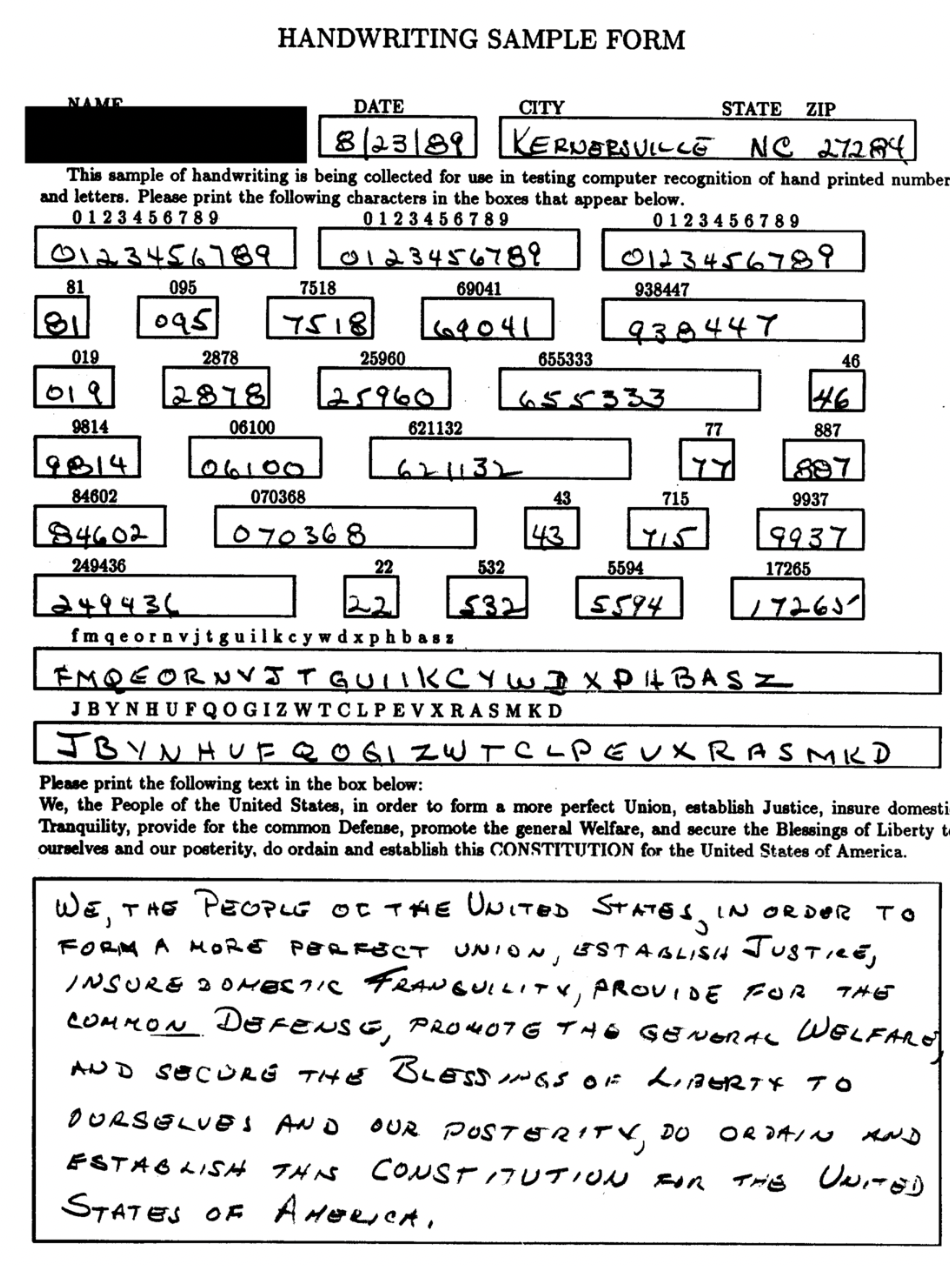 HANDWRITING SAMPLE FORM
NAME DATE CITY STATE ZIP
8/23/89 KERNERSVILLE NC 27284
This sample of handwriting is being collected for use in testing computer recognition of hand printed number
and letters. Please print the following characters in the boxes that appear below.
0 1 2 3 4 5 6 7 8 9 0 1 2 3 4 5 6 7 8 9 0 1 2 3 4 5 6 7 8 9
0123456789 0123456789 0123456789
81 095 7518 69041 938447
81 095 7518 69041 938447
019 2878 25960 655333 46
019 2878 25960 655333 46
9814 06100 621132 77 887
9814 06100 621132 77 887
84602 070368 43 715 9937
84602 070368 43 715 9937
249436 22 532 5594 17265
249436 22 532 5594 17265
f m q e o r n v j t g u i l k c y w d x p h b a s z
FMQEORNVJTGUIIKCYWDXPHBASZ
J B Y N H U F Q O G I Z W T C L P E V X R A S M K D
JBYNHUFQOGIZWTCLPEVXRASMKD
Please print the following text in the box below:
We, the People of the United States, in order to form a more perfect Union, establish Justice, insure domesti
Tranquility, provide for the common Defense, promote the general Welfare, and secure the Blessings of Liberty t
ourselves and our posterity, do ordain and establish this CONSTITUTION for the United States of America.
WE, THE PEOPLE OF THE UNITED STATES, IN ORDER TO
FORM A MORE PERFECT UNION, ESTABLISH JUSTICE,
INSURE DOMESTIC TRANQUILITY, PROVIDE FOR THE
COMMON DEFENSE, PROMOTE THE GENERAL WELFARE,
AND SECURE THE BLESSINGS OF LIBERTY TO
OURSELVES AND OUR POSTERITY, DO ORDAIN AND
ESTABLISH THIS CONSTITUTION FOR THE UNITED
STATES OF AMERICA.